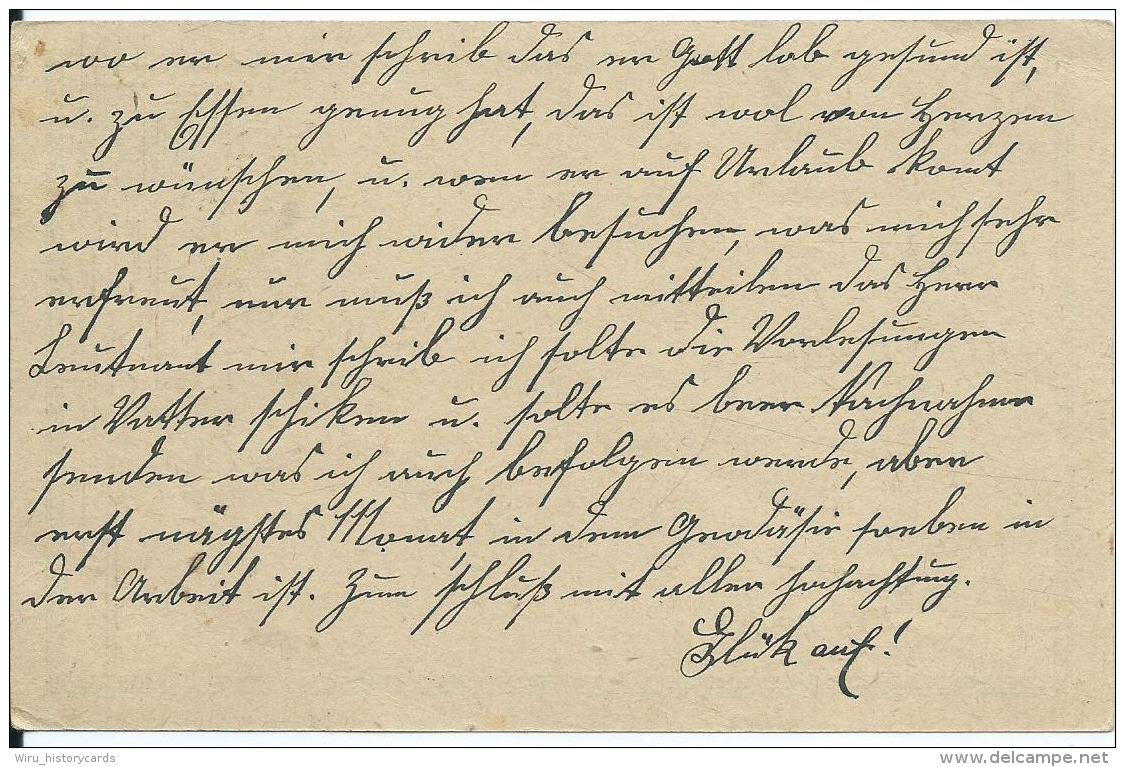 wo er mir schrib das er Gott lob gesund ist,
u. zu Essen genug hat, das ist wol von Herzen
zu wünschen, u. wen er auf Urlaub komt
wird er mich wider besuchen, was mich sehr
erfreut, nur muß ich auch mitteilen das Herr
Leutnant mir schrib ich solte die Vorlesungen
in Vatter schiken u. solte es beer Nachnahme
senden was ich auch befolgen werde, aber
erst nägstes Monat, in dem Geodäsie soeben in
der Arbeit ist. Zum schluß mit aller hochachtung.
Glük auf!
Wiru_historycards
www.delcampe.net